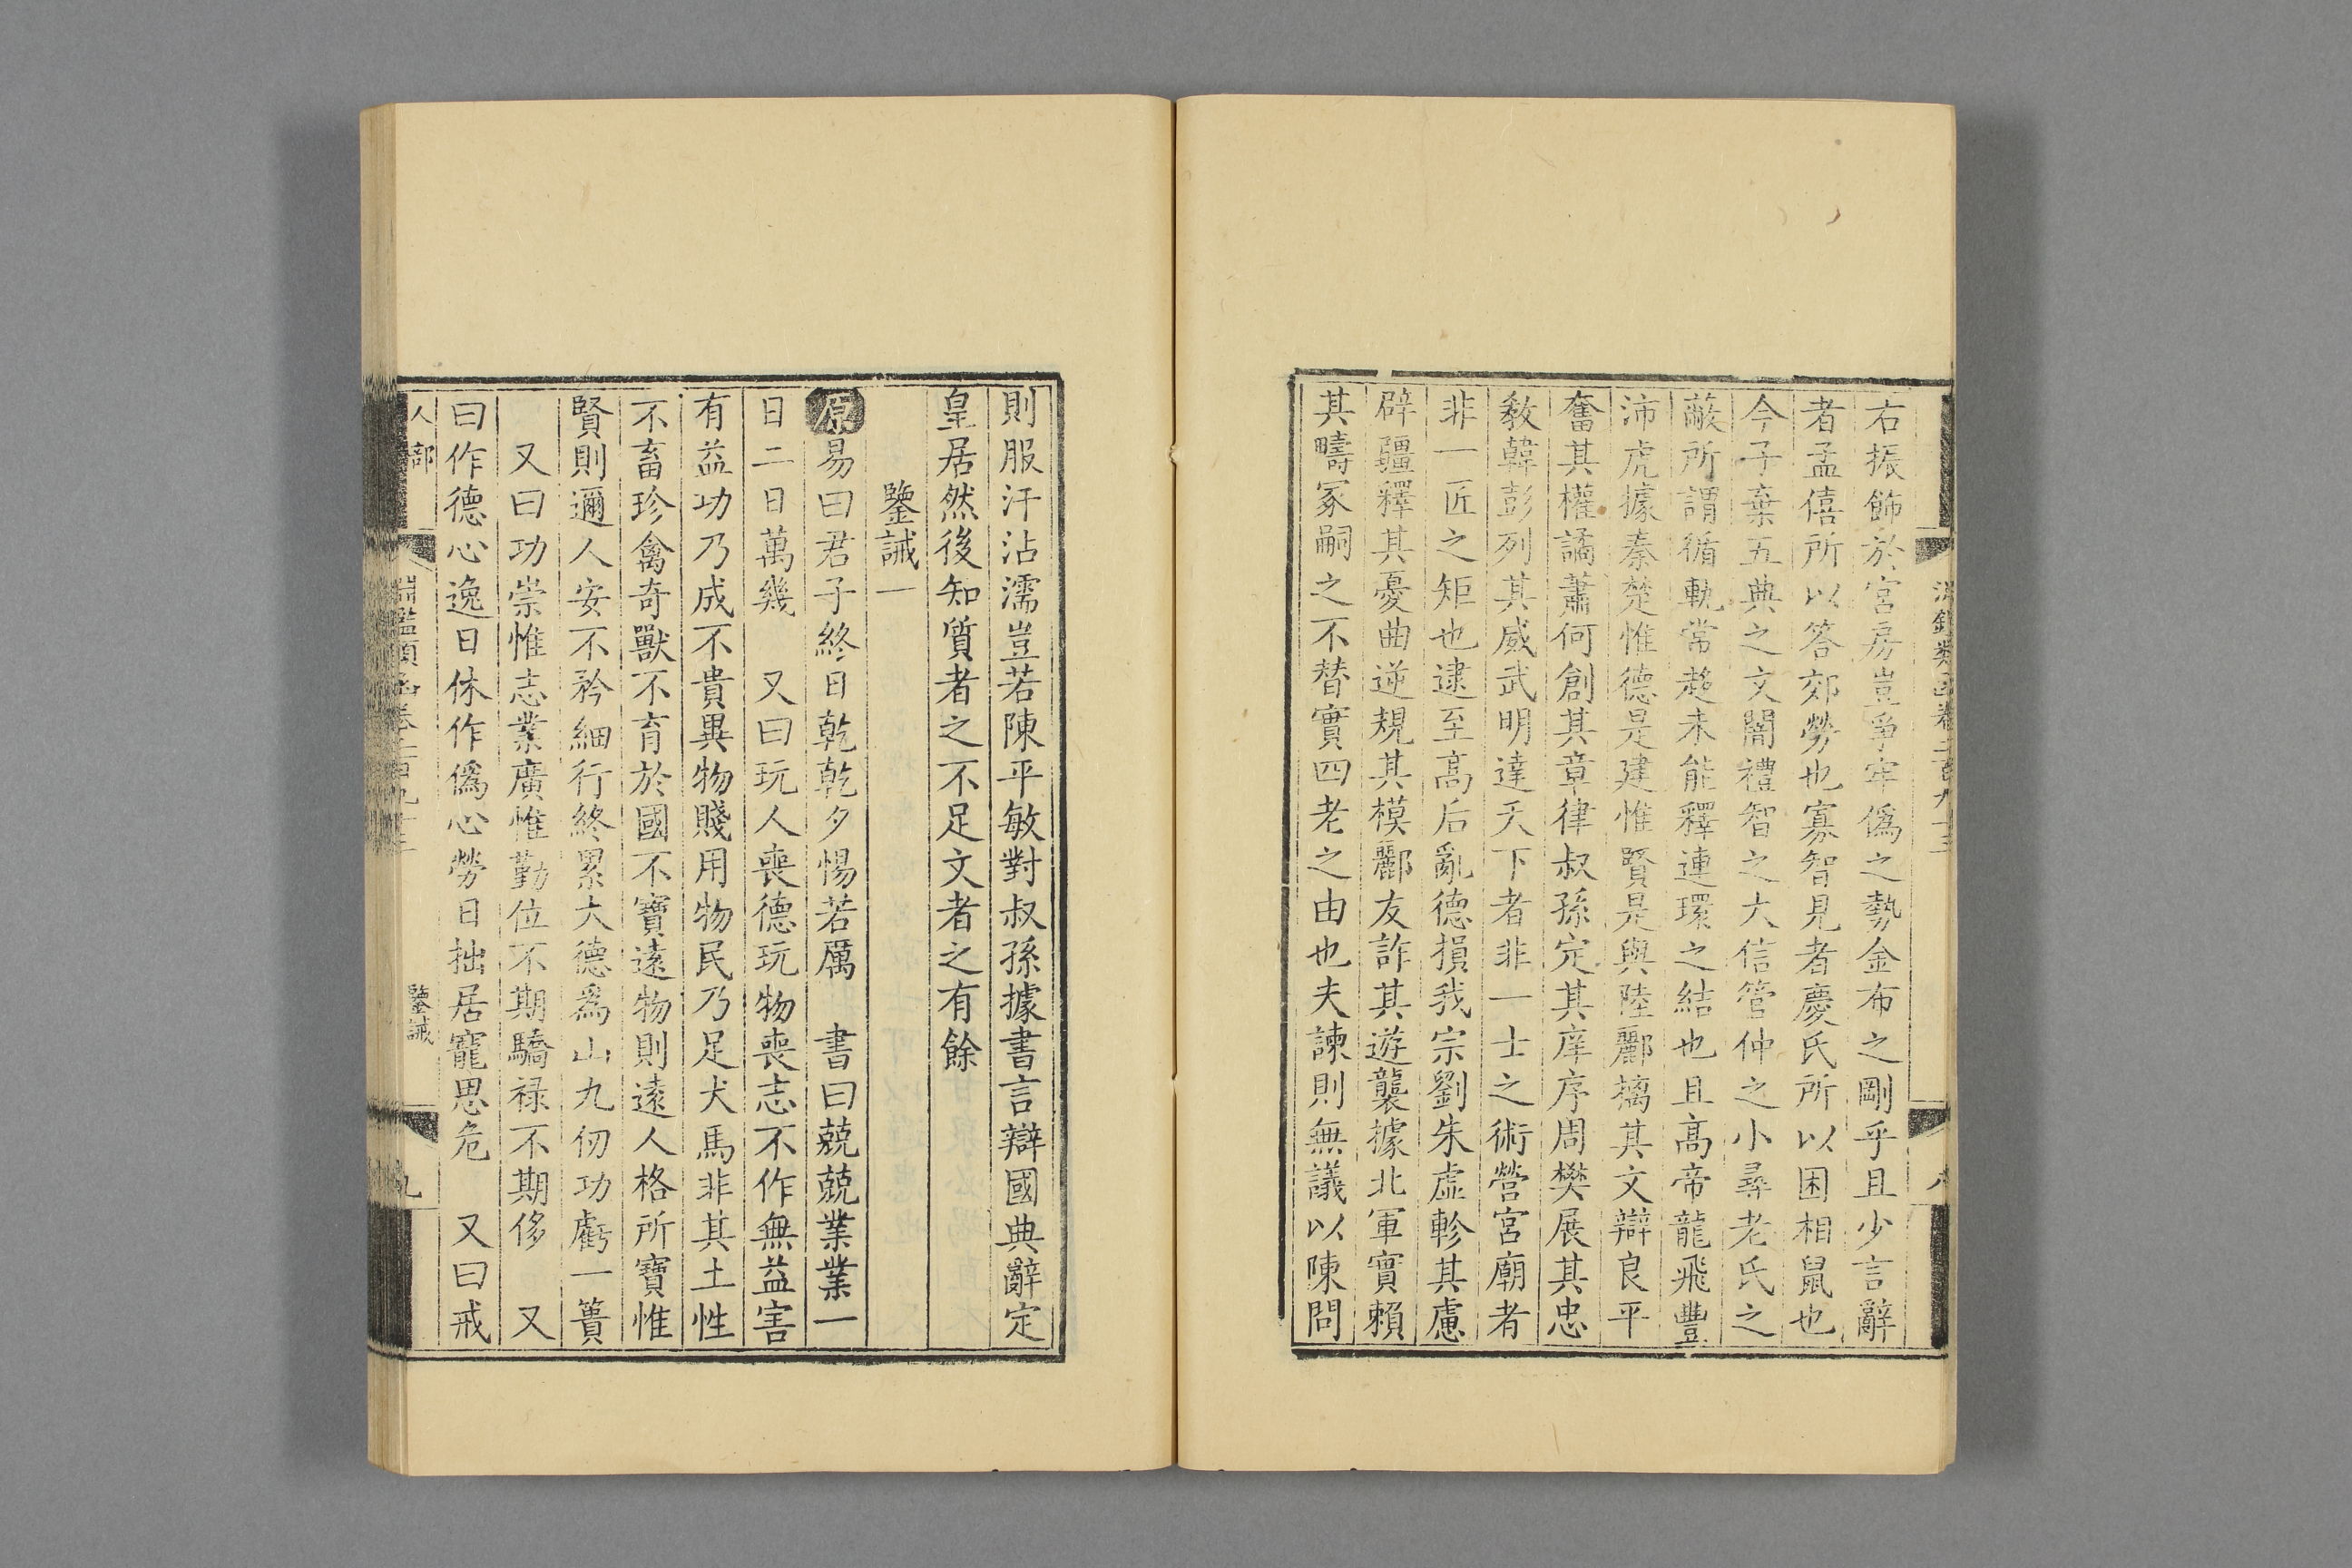 右振飾於宮房豈爭牢僞之勢金布之剛乎且少言辭
者孟僖所以答郊勞也寡智見者慶氏所以困相鼠也
今子棄五典之文闇禮智之大信管仲之小尋老氏之
蔽所謂循軌常趍未能釋連環之結也且高帝龍飛豐
沛虎據秦楚惟德是建惟賢是與陸酈摛其文辯良平
奮其權譎蕭何創其章律叔孫定其庠序周樊展其忠
敎韓彭列其威武明達天下者非一士之術營宮廟者
非一匠之矩也逮至高后亂德損我宗劉朱虛軫其慮
辟疆釋其憂曲逆規其模酈友詐其遊襲據北軍實賴
其疇冢嗣之不替實四老之由也夫諫則無議以陳問
則服汗沾濡豈若陳平敏對叔孫據書言辯國典辭定
皇居然後知質者之不足文者之有餘
鑒誡一
原易曰君子終日乾乾夕惕若厲　書曰兢兢業業一
日二日萬幾　又曰玩人喪德玩物喪志不作無益害
有益功乃成不貴異物賤用物民乃足犬馬非其土性
不畜珍禽奇獸不育於國不寶遠物則遠人格所寶惟
賢則邇人安不矜細行終累大德爲山九仞功虧一簣
又曰功崇惟志業廣惟勤位不期驕祿不期侈　又
曰作德心逸日休作僞心勞日拙居寵思危　又曰戒
人部
淵鑑類函卷二百九十三
鑒誡
九